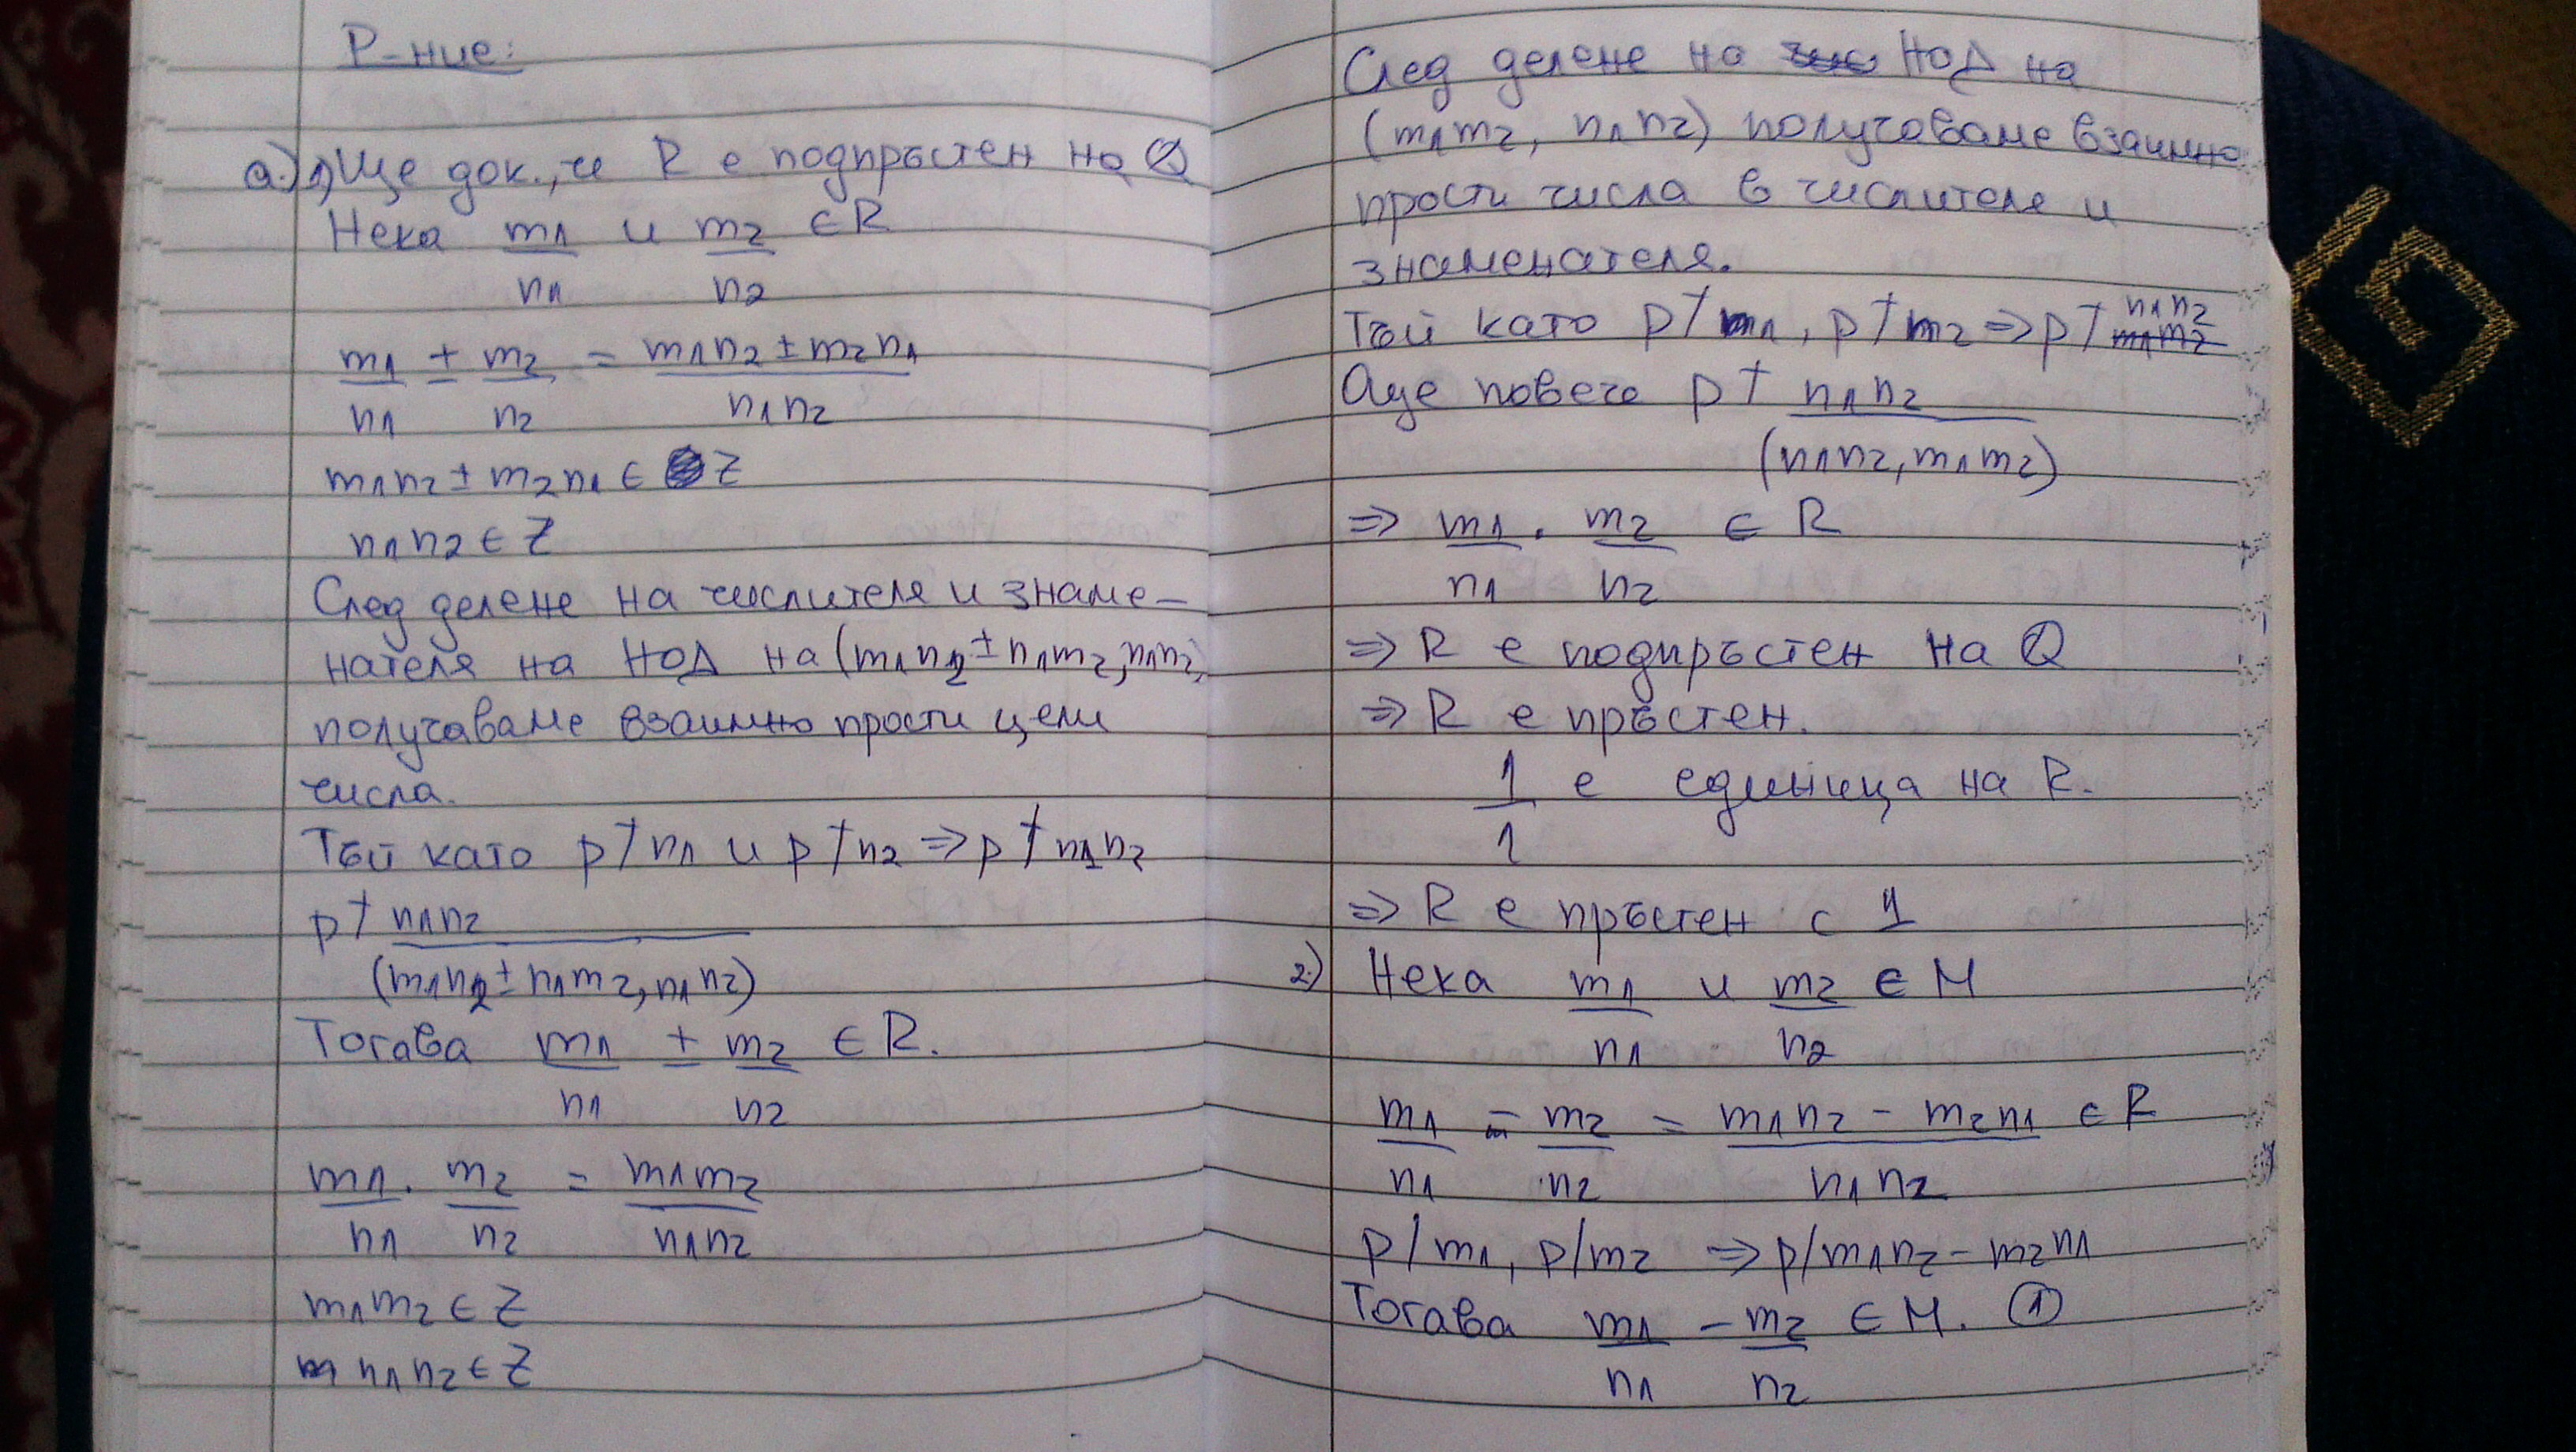 Р-ние:
а.) 1) Ще док., че R е подпръстен на Q
Нека m1/n1 и m2/n2 ∈ R
m1/n1 ± m2/n2 = (m1n2 ± m2n1)/(n1n2)
m1n2 ± m2n1 ∈ Z
n1n2 ∈ Z
След делене на числителя и знаме-
нателя на НОД на (m1n2 ± n1m2, n1n2)
получаваме взаимно прости цели
числа.
Тъй като p∤n1 и p∤n2 ⇒ p∤n1n2
p∤ n1n2/(m1n2 ± n1m2, n1n2)
Тогава m1/n1 ± m2/n2 ∈ R.
m1/n1 . m2/n2 = m1m2/n1n2
m1m2 ∈ Z
n1n2 ∈ Z
След делене на НОД на
(m1m2, n1n2) получаваме взаимно
прости числа в числителя и
знаменателя.
Тъй като p∤m1, p∤m2 ⇒ p∤n1n2
Още повече p∤ n1n2/(n1n2, m1m2)
⇒ m1/n1 . m2/n2 ∈ R
⇒ R е подпръстен на Q
⇒ R е пръстен.
1/1 е единица на R.
⇒ R е пръстен с 1
2.) Нека m1/n1 и m2/n2 ∈ M
m1/n1 - m2/n2 = (m1n2 - m2n1)/(n1n2) ∈ R
p/m1, p/m2 ⇒ p/m1n2 - m2n1
Тогава m1/n1 - m2/n2 ∈ M. ①